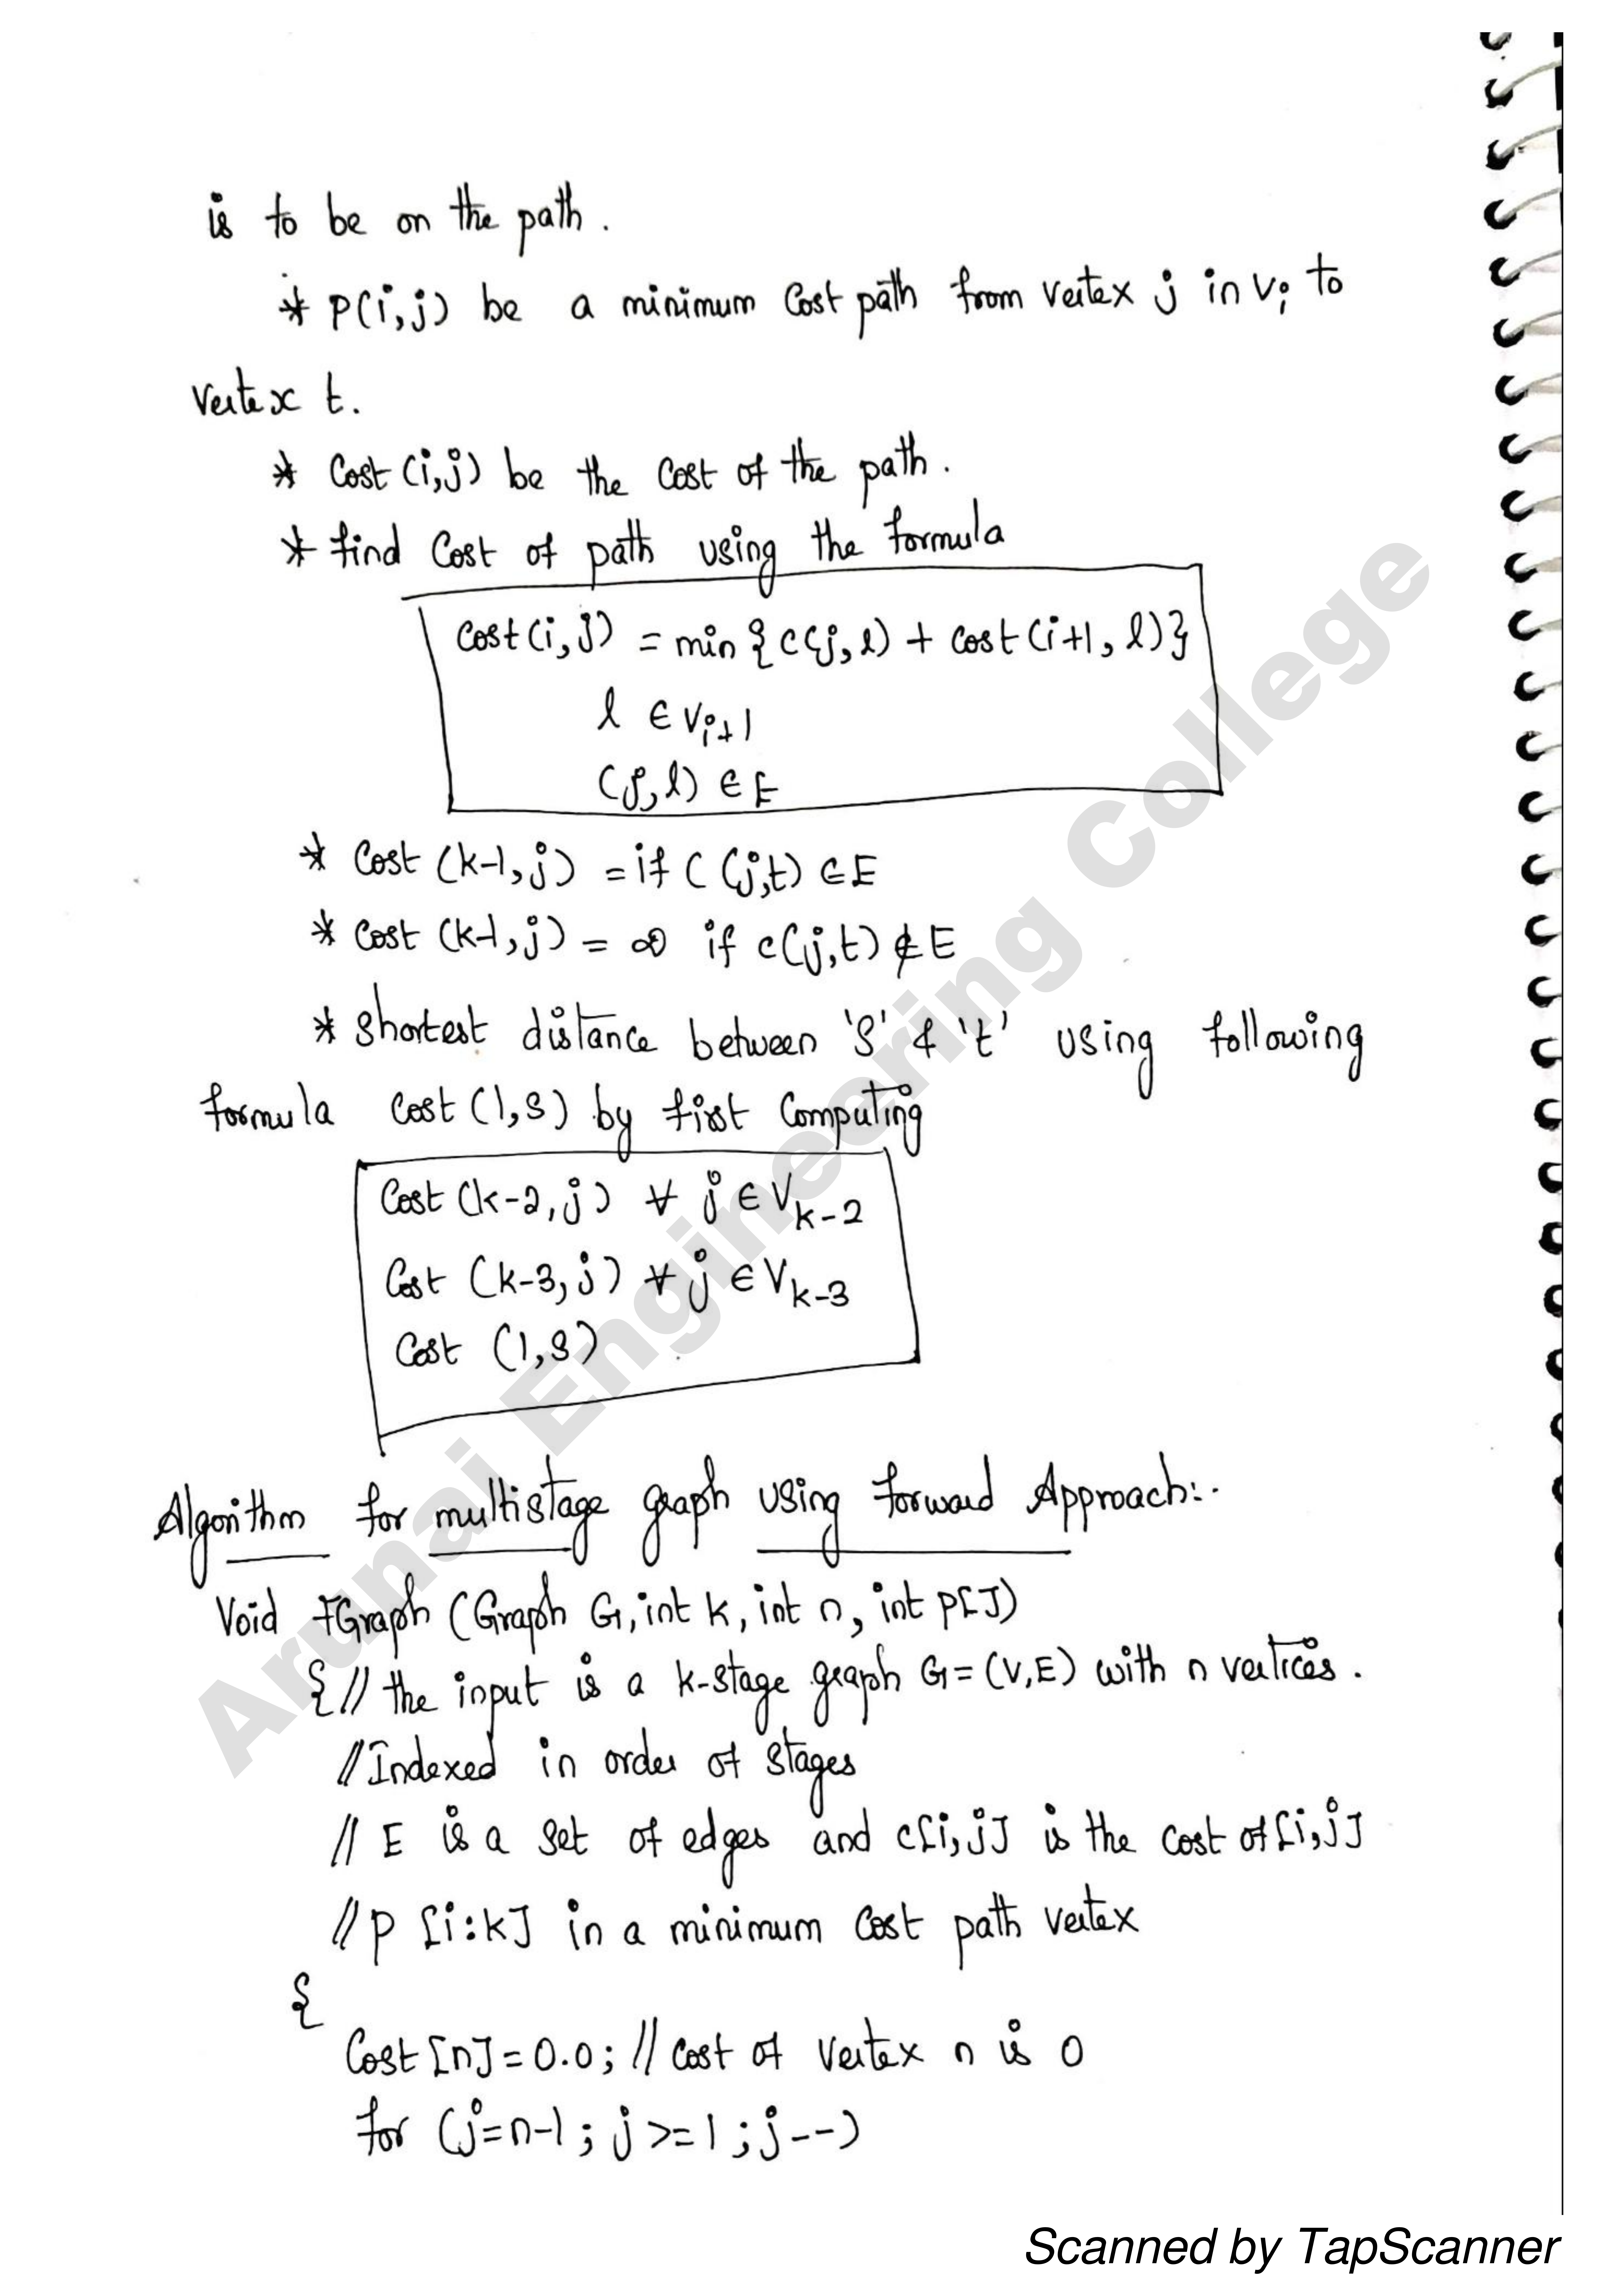 is to be on the path.
* P(i,j) be a minimum Cost path from vertex j in Vi to
vertex t.
* Cost (i,j) be the Cost of the path.
* find Cost of path using the formula
Cost(i,j) = min { c(j,l) + cost(i+1, l) }
l ∈ Vi+1
(j,l) ∈ E
* Cost (k-1,j) = if C (j,t) ∈ E
* Cost (k-1,j) = ∞ if c(j,t) ∉ E
* Shortest distance between 'S' & 't' using following
formula Cost (1,S) by first Computing
Cost (k-2,j) ∀ j ∈ Vk-2
Cost (k-3,j) ∀ j ∈ Vk-3
Cost (1,S)
Algorithm for multistage graph using forward Approach:-
Void FGraph (Graph G, int k, int n, int P[])
{ // the input is a k-stage graph G = (V,E) with n vertices.
// Indexed in order of stages
// E is a set of edges and c[i,j] is the cost of [i,j]
// P [i:k] in a minimum Cost path vertex
{
Cost [n] = 0.0; // cost of vertex n is 0
for (j=n-1; j>=1; j--)
Arunai Engineering College
Scanned by TapScanner